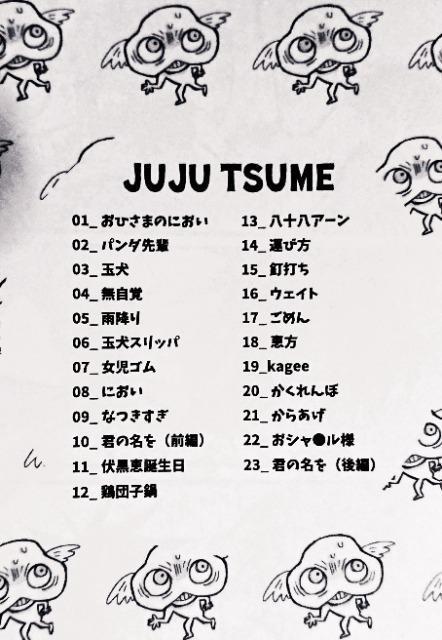 JUJU TSUME
01_ おひさまのにおい
02_ パンダ先輩
03_ 玉犬
04_ 無自覚
05_ 雨降り
06_ 玉犬スリッパ
07_ 女児ゴム
08_ におい
09_ なつきすぎ
10_ 君の名を（前編）
11_ 伏黒恵誕生日
12_ 鶏団子鍋
13_ 八十八アーン
14_ 運び方
15_ 釘打ち
16_ ウェイト
17_ ごめん
18_ 恵方
19_kagee
20_ かくれんぼ
21_ からあげ
22_ おシャ●ル様
23_ 君の名を（後編）